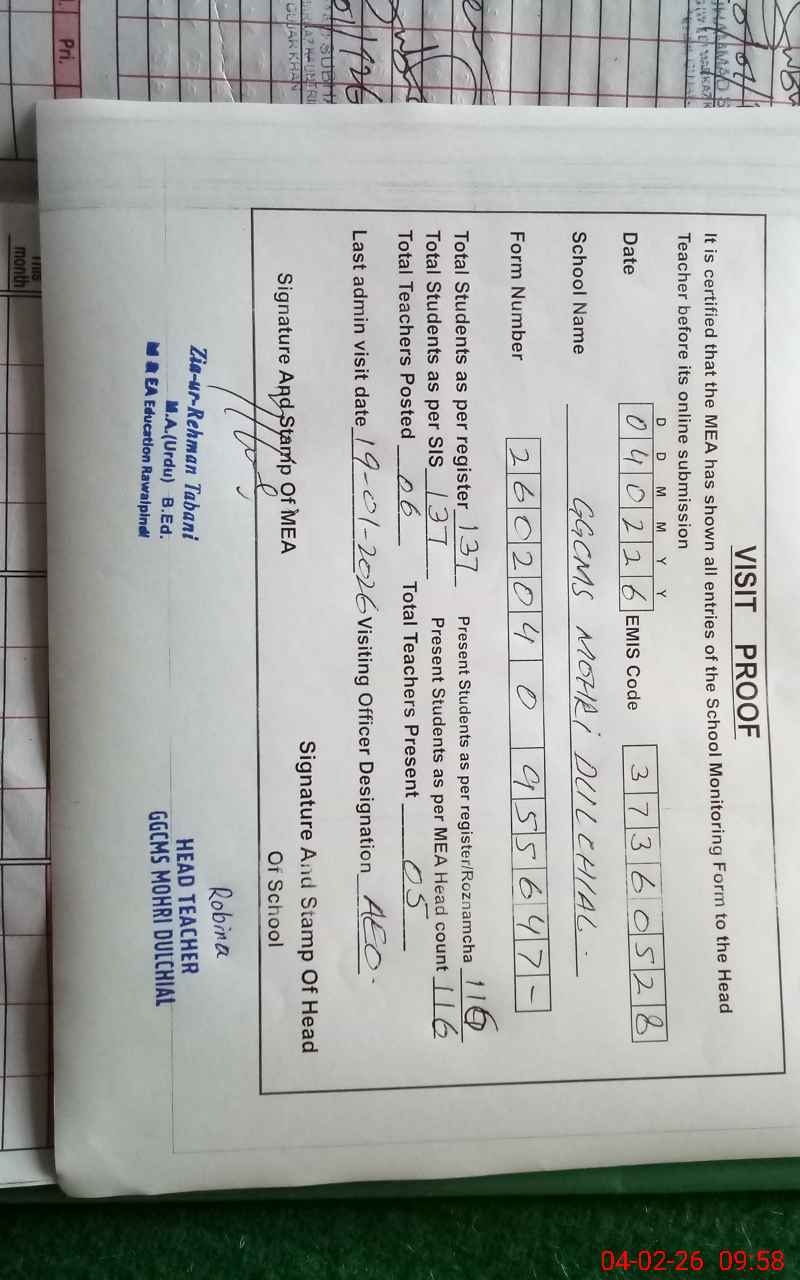 VISIT PROOF
It is certified that the MEA has shown all entries of the School Monitoring Form to the Head
Teacher before its online submission
D D M M Y Y
Date 040226 EMIS Code 37360528
School Name GGCMS MOHRI DULCHIAL.
Form Number 2602040955647-
Total Students as per register 137 Present Students as per register/Roznamcha 116
Total Students as per SIS 137 Present Students as per MEA Head count 116
Total Teachers Posted 06 Total Teachers Present 05
Last admin visit date 19-01-2026 Visiting Officer Designation AEO.
Signature And Stamp Of MEA
Signature And Stamp Of Head
Of School
Robina
Zia-ur-Rehman Tabani
M.A.(Urdu) B.Ed.
M & EA Education Rawalpindi
HEAD TEACHER
GGCMS MOHRI DULCHIAL
Pri.
This
month
GUJAR KHAN
04-02-26 09:58